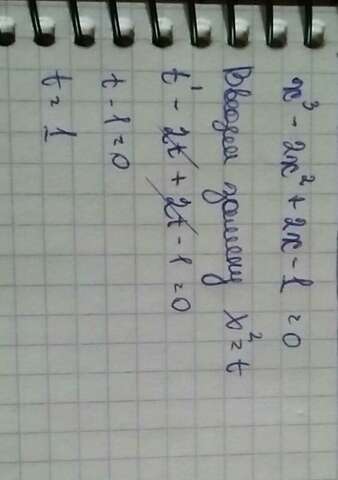 x³ - 2x² + 2x - 1 = 0
Вводим замену x² = t
t¹ - 2t + 2t - 1 = 0
t - 1 = 0
t = 1